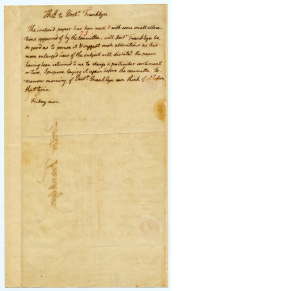 Th: J. to Doct. Franklyn.
The inclosed paper has been read & with some small altera-
tions approved of by the committee. will Doct. Franklyn be
so good as to peruse it & suggest such alterations as his
more enlarged view of the subject will dictate? the paper
having been returned to me to change a particular sentiment
or two, I propose laying it again before the committee to-
morrow morning, if Doct. Franklyn can think of it before
that time.
Friday morn.
Doctor Franklyn